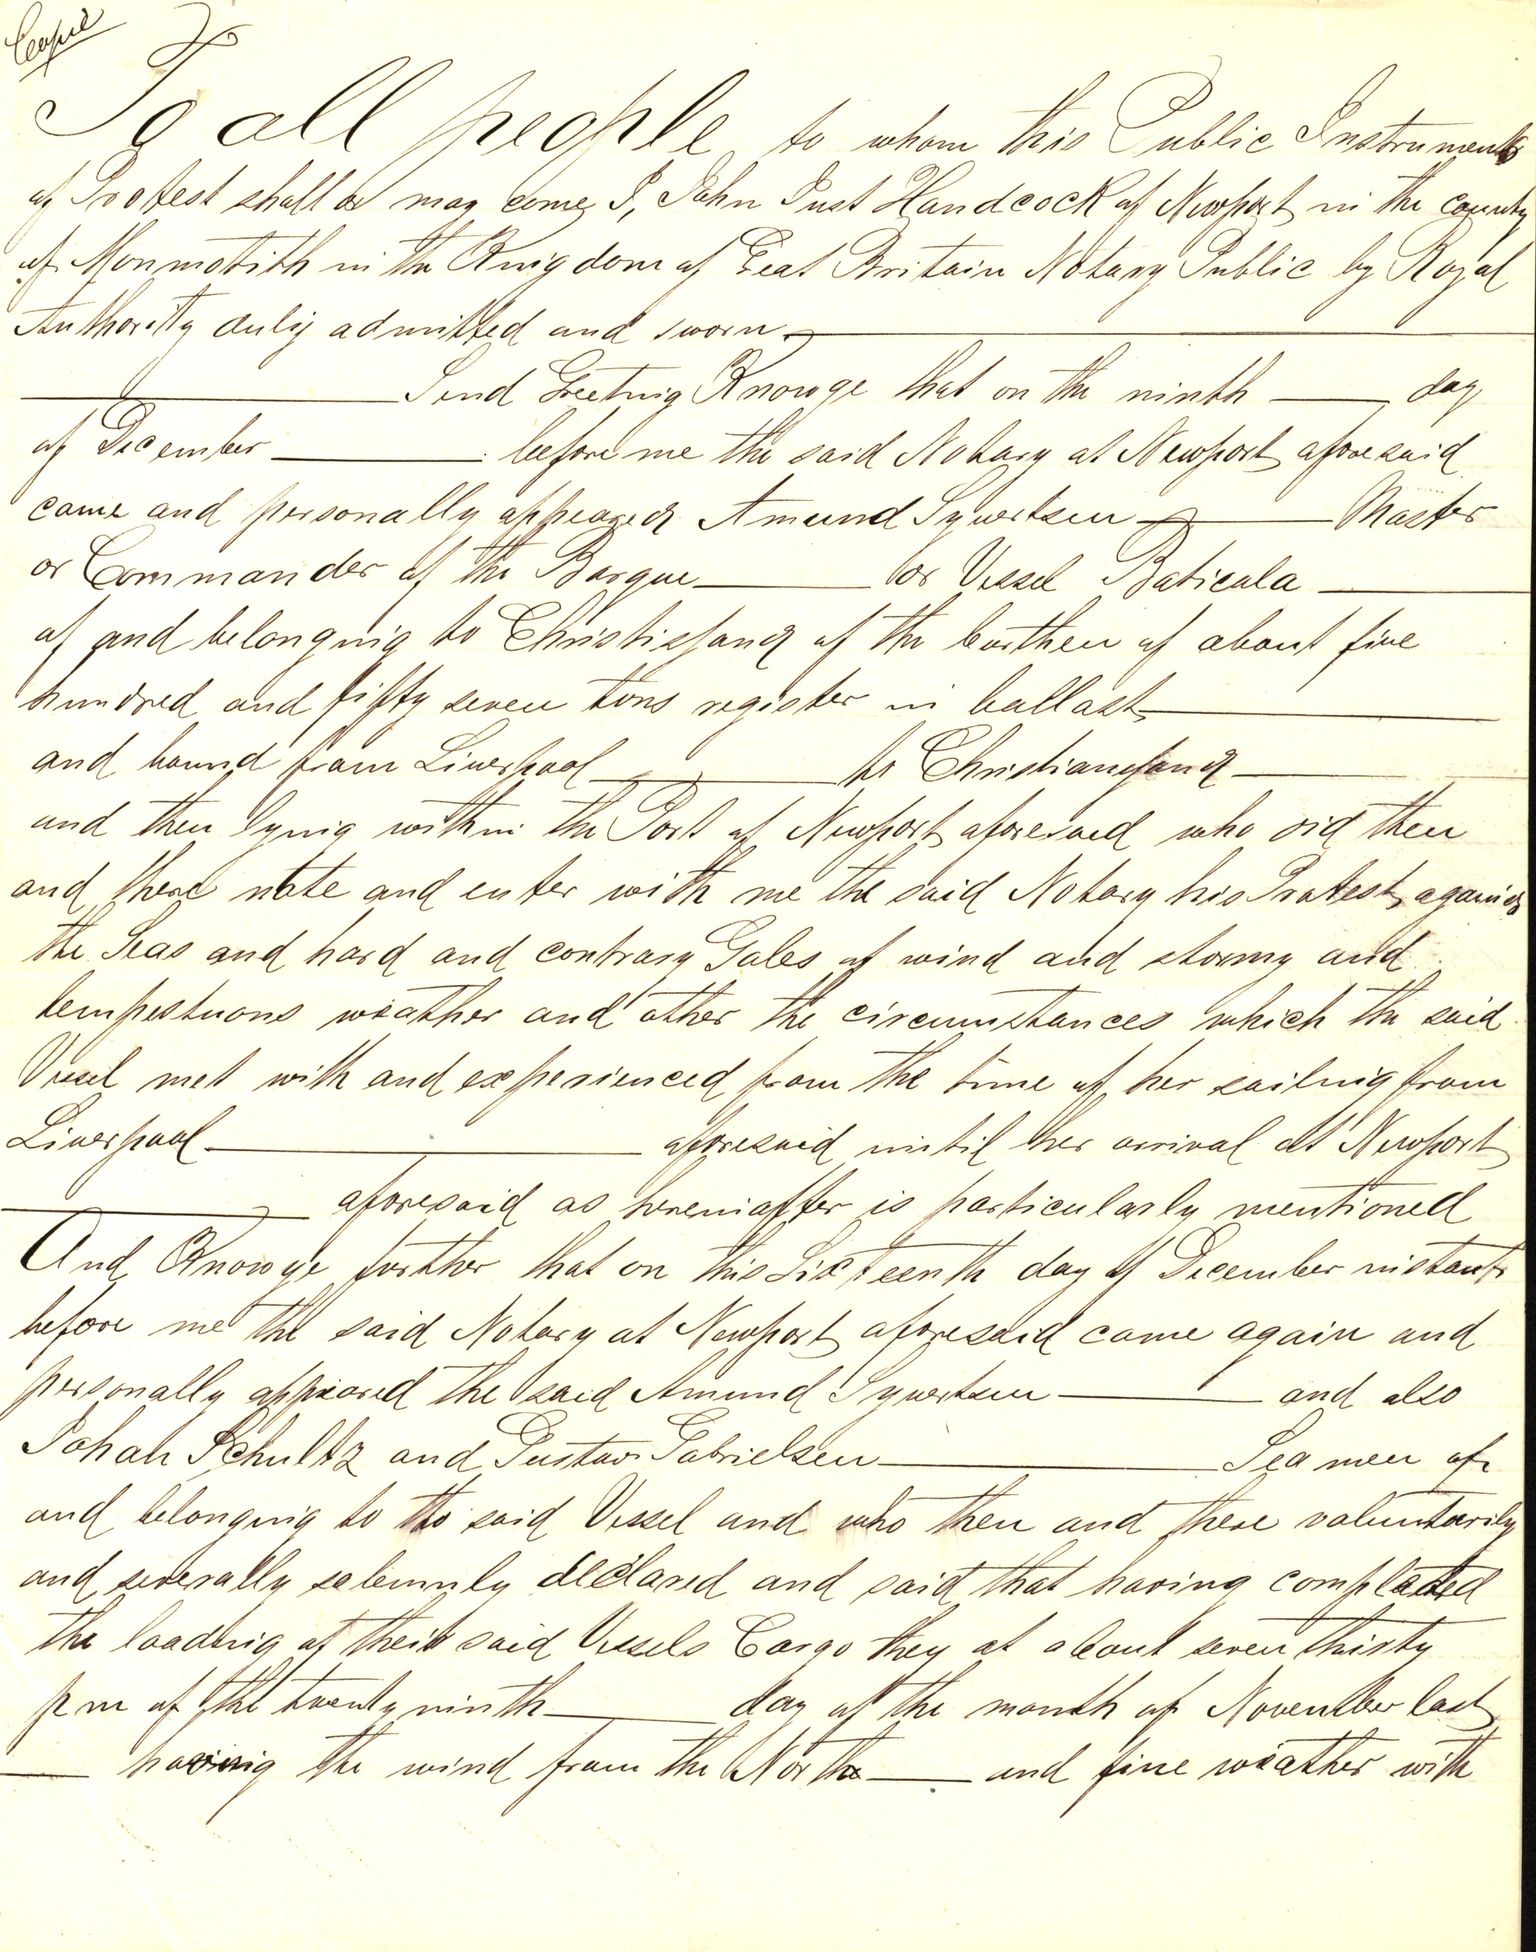 Copie
To all people to whom this Public Instrument
of Protest shall or may come, I, John Just Handcock of Newport in the county
of Monmotith in the Kingdom of Geat Britain Notary Public by Royal
Authority duly admitted and sworn
Send Greeting Know ye that on the ninth day
of December before me the said Notary at Newport aforesaid
came and personally appeared Amund Sywertsen Master
or Commander of the Barque or Vessel Baticola
of and belonging to Christissand of the burthen of about five
hundred and fifty seven tons register in ballast
and bound from Liverpool to Christianssand
and then lying within the Port of Newport aforesaid who did then
and there note and enter with me the said Notary his Protest against
the Seas and hard and contrary Gales of wind and stormy and
tempestuons weather and other the circumstances which the said
Vessel met with and experienced from the time of her sailing from
Liverpool aforesaid until her arrival at Newport
aforesaid as hereinaffter is particularly mentioned
And Know ye further that on this Sixteenth day of December instant
before me the said Notary at Newport aforesaid came again and
personally appeared the said Amund Sywertsen and also
Johan Schultz and Gustav Gabrielsen Seamen of
and belonging to the said Vessel and who then and there voluntarily
and severally solemnly declared and said that having completed
the loading of their said Vessels Cargo they at about seven thirty
pm of the twenty ninth day of the month of November last
having the wind from the North and fine weather with